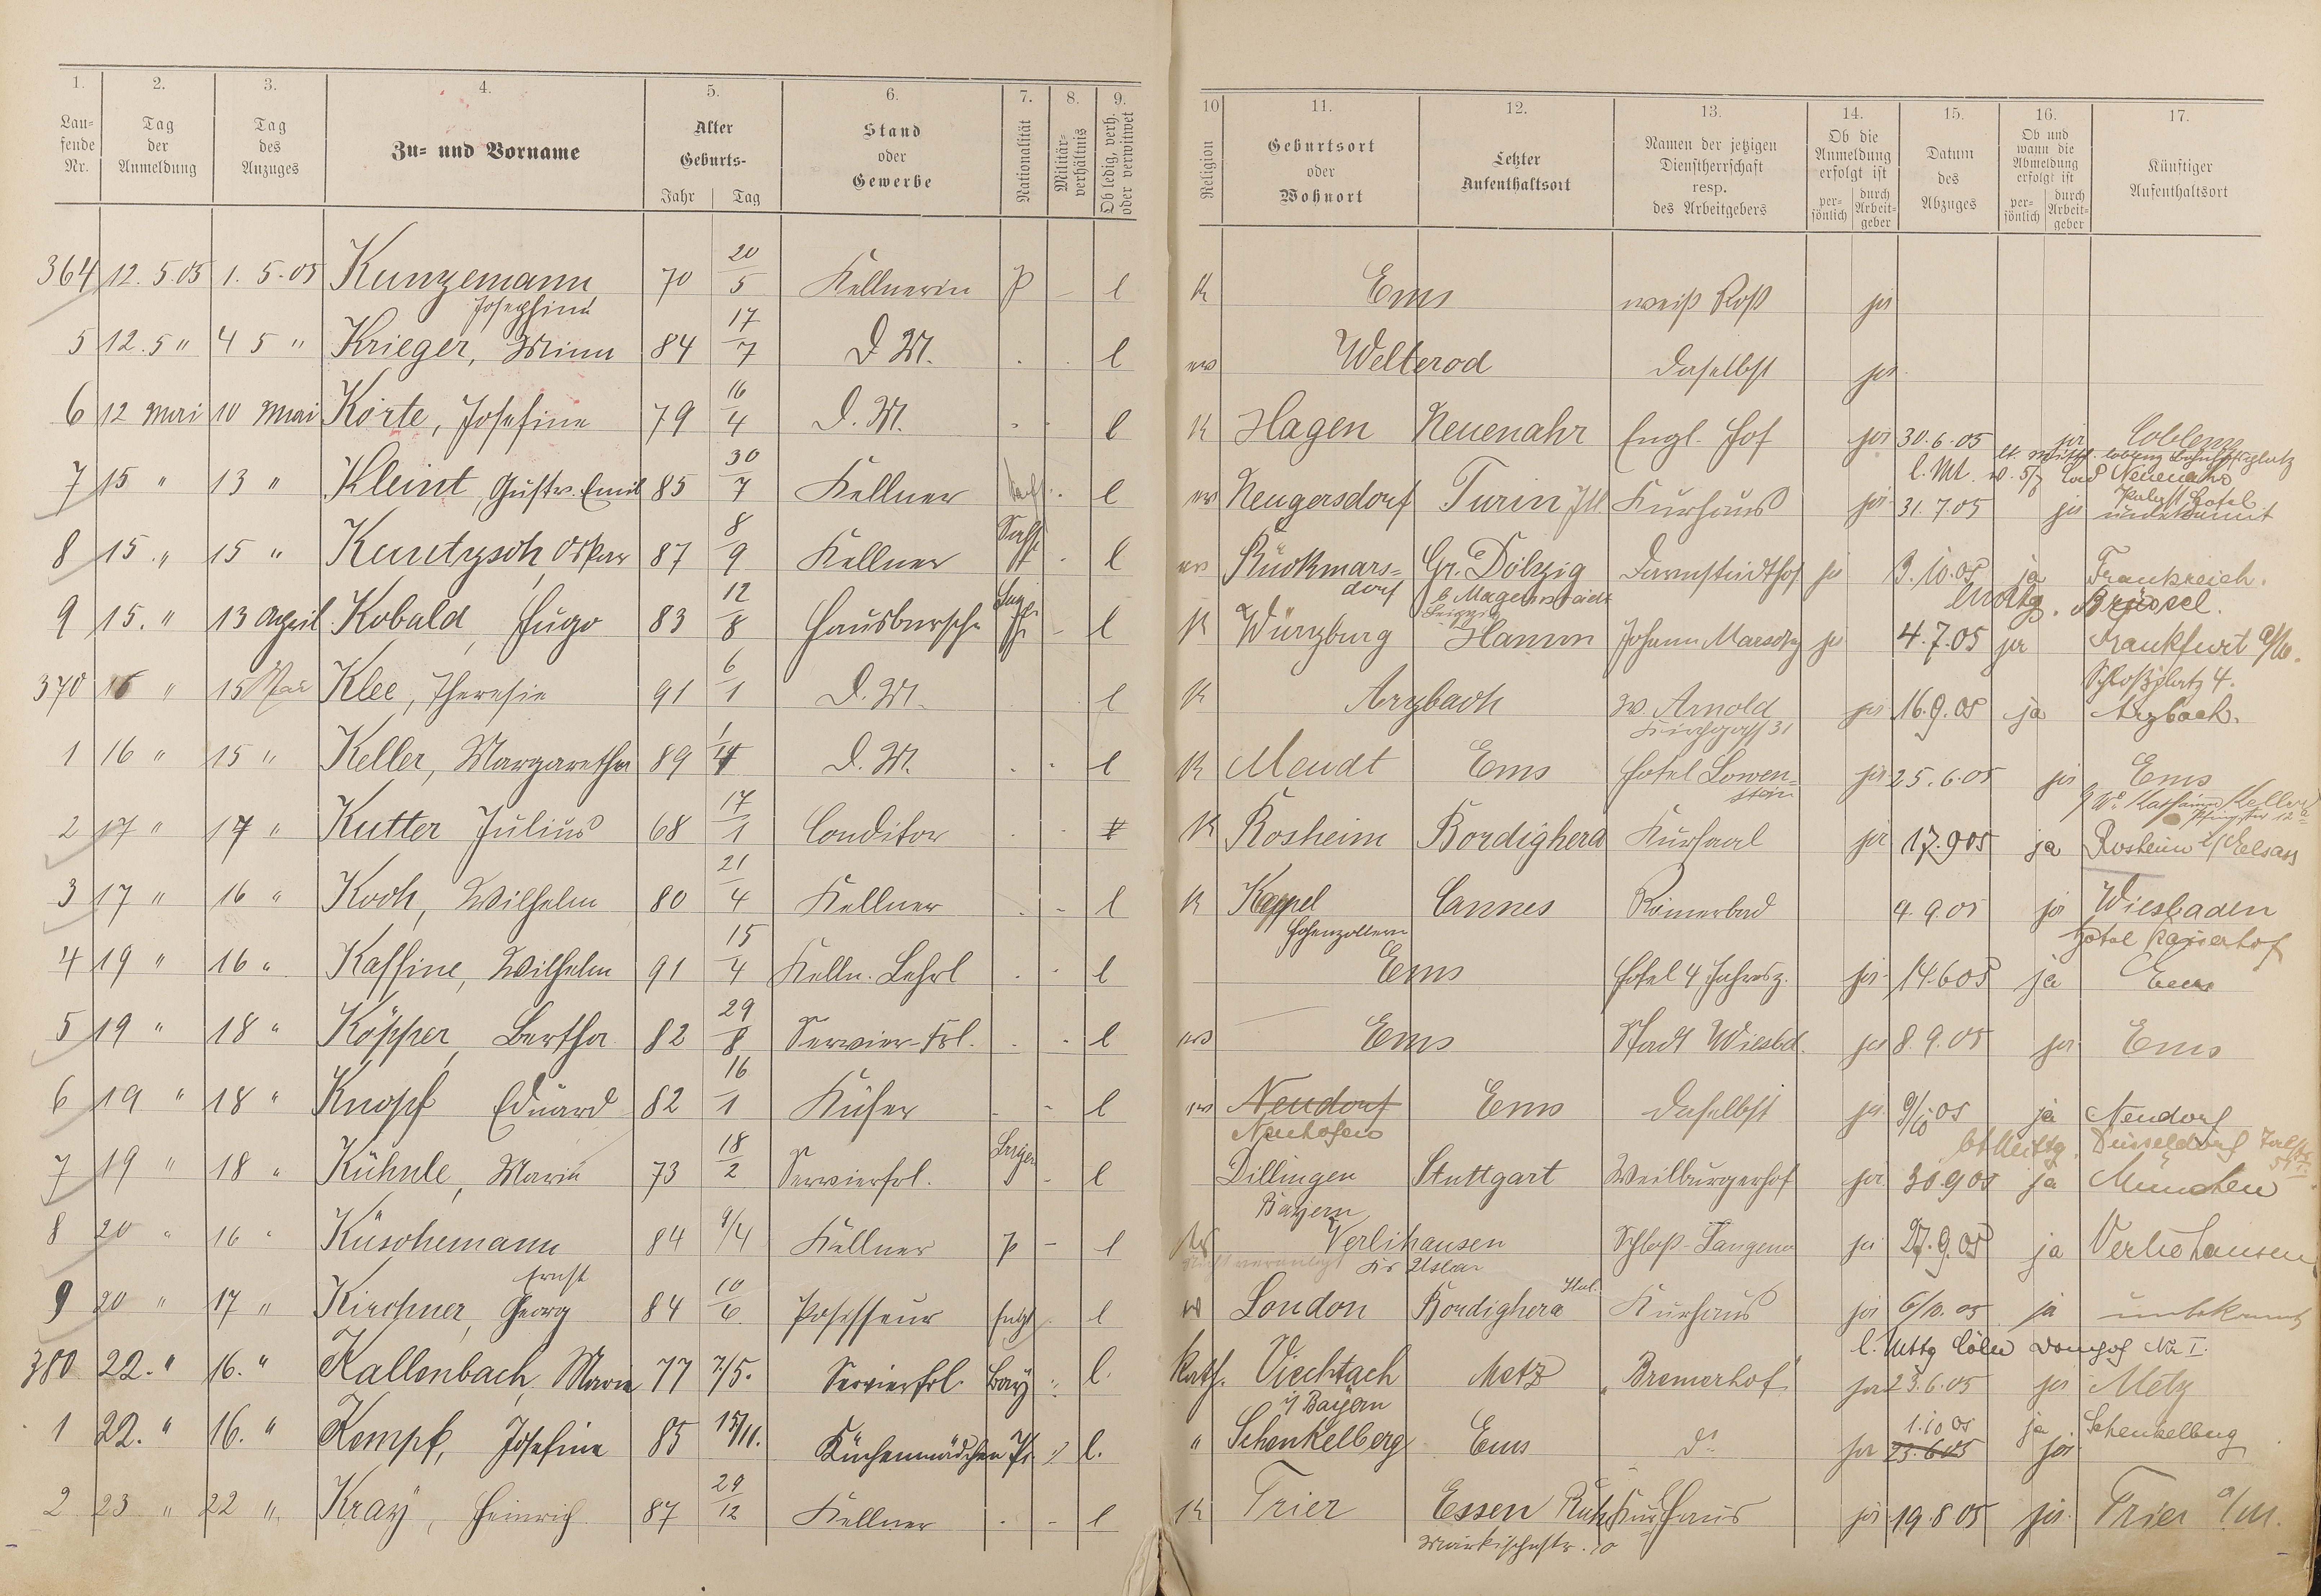 1. 2. 3. 4. 5. 6. 7. 8. 9. 10 11. 12. 13. 14. 15. 16. 17.
Lau-
fende
Nr.
Tag
der
Anmeldung
Tag
des
Anzuges
Zu- und Vorname
Alter
Geburts-
Jahr Tag
Stand
oder
Gewerbe
Nationalität
Militär-
verhältnis
Ob ledig, verh.
oder verwitwet
Religion
Geburtsort
oder
Wohnort
Letzter
Aufenthaltsort
Namen der jetzigen
Dienstherrschaft
resp.
des Arbeitgebers
Ob die
Anmeldung
erfolgt ist
per-
sönlich
durch
Arbeit-
geber
Datum
des
Abzuges
Ob und
wann die
Abmeldung
erfolgt ist
per-
sönlich
durch
Arbeit-
geber
Künftiger
Aufenthaltsort
364 12. 5.05 1. 5.05 Kunzemann 70 20/5 Kellnerin P – l K Ems weiß Roß ja
Josephine
5 12. 5 " 4 5 " Krieger, Minna 84 17/7 D. M. . . l ev Welterod daselbst ja
6 12 Mai 10 Mai Körte, Josefine 79 16/4 D. M. . . l K Hagen Neuenahr Engl. Hof ja 30.6.05 ja Coblenz
Bad Neuenahr
7 15 " 13 " Kleint, Gustv. Emil 85 30/7 Kellner . l ev Neugersdorf Turin Kurhaus ja 31.7.05 ja unbekannt
8 15. " 15 " Kuntzsch Oskar 87 8/9 Kellner . l ev Rückmars= Gr. Dölzig Darmstädthof ja 3.10.05 ja Frankreich.
dorf Leipzig Brüssel.
9 15. " 13 April Kobald, Hugo 83 12/8 Hausbursche – l K Würzburg Hamm Johann ja 4.7.05 ja Frankfurt a/M.
Schloßplatz 4.
370 16 " 15 Mai Klee, Therese 91 6/1 D. M. l K Arzbach W. Arnold ja 16.9.05 ja Arzbach.
Kirchgass 31
1 16 " 15 " Keller, Margaretha 89 D. M. . . l K Meudt Ems Hotel Löwen= ja 25.6.05 ja Ems
stein
2 17 " 17 " Kutter Julius 68 17/1 Conditor . . K Rosheim Bordighera Kursaal ja 17.9.05 ja Rosheim i/Elsass
3 17 " 16 " Koch, Wilhelm 80 21/4 Kellner . – l K Kappel Cannes Römerbad 4.9.05 ja Wiesbaden
Hohenzollern Hotel Kaiserhof
4 19 " 16 " Kaffine, Wilhelm 91 15/4 Kelln. Lehrl . . l Ems Hotel 4 Jahresz. ja 14.6.05 ja Ems
5 19 " 18 " Köpper, Bertha 82 29/8 Servier-Frl. . . l ev Ems Stadt Wiesbd. ja 8.9.05 ja Ems
6 19 " 18 " Knopf Eduard 82 16/1 Küfer . – l ev Neudorf Ems daselbst ja 9/10 05 ja Neudorf
Neuhofen Düsseldorf
7 19 " 18 " Kühnle, Maria 73 18/2 Servierfrl. – l Dillingen Stuttgart Weilburgerhof ja 30.9.05 ja München
Bayern
8 20 " 16 " Küschemann 84 9/4 Kellner P – l Verlihausen Schloß-Langenau ja 27.9.05 ja Verliehausen
Ernst Kr Uslar
9 20 " 17 " Kirchner, Georg 84 10/6 Posesseur Engl. l London Bordighera Ital. Kurhaus ja 6/10.05 ja unbekannt
380 22. " 16. " Kallenbach, Marie 77 7/5. Servierfrl. Bay l. Kath. Viechtach Metz "Bremerhof" ja 23.6.05 ja Metz
i/ Bayern
1 22. " 16. " Kempf, Josefine 85 15/11. Küchenmädchen Pr. l. " Schenkelberg Ems do ja 23.6.05 ja
1.10 05 ja Schenkelberg
2 23 " 22 " Kray, Heinrich 87 29/12 Kellner . – l K Trier Essen Ruhr Kurhaus ja 19.8.05 ja Trier a/M.
Märkischestr. 10